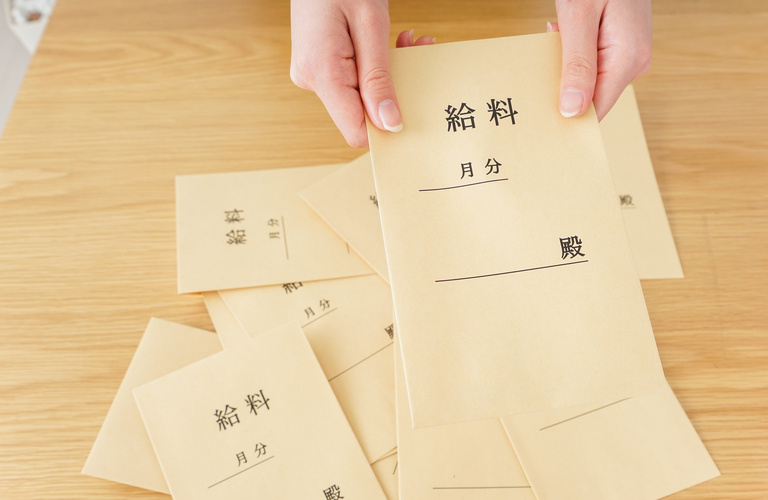 給料
月分
殿
給料
月分
殿
給
月分
給料
月分
殿
殿